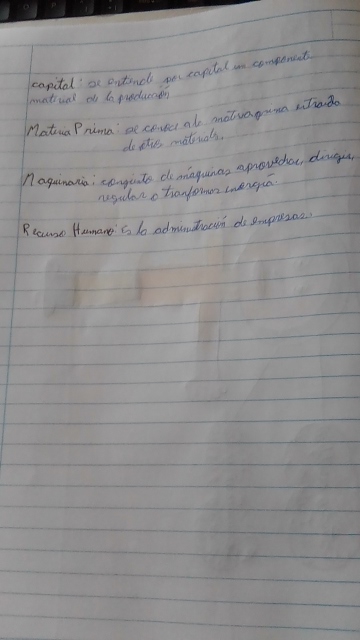 capital: se entiende por capital un componente
material de la producción
Materia Prima: se conoce a la extraida
de otros materials.
Maquinaria: conjunto de máquinas aprovechar, dirigir,
regular o tranformar energia.
Recurso Humano: Es la administración de empresas.